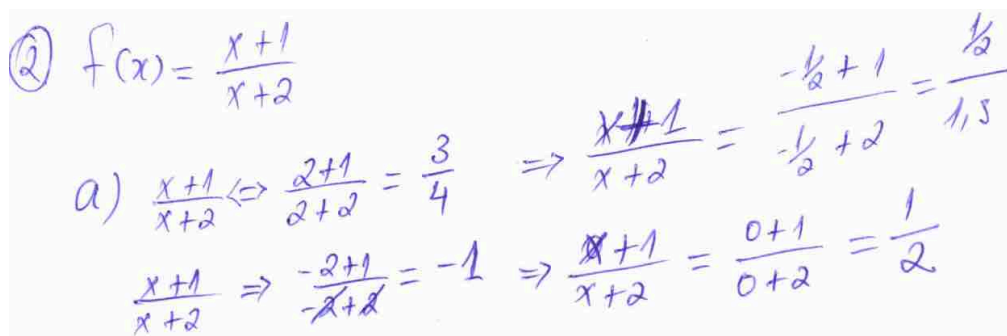 ② f(x) = (x+1)/(x+2)
a) (x+1)/(x+2) <=> (2+1)/(2+2) = 3/4 => (x+1)/(x+2) = (-1/2+1)/(-1/2+2) = (1/2)/(1,5)
(x+1)/(x+2) => (-2+1)/(-2+2) = -1 => (x+1)/(x+2) = (0+1)/(0+2) = 1/2